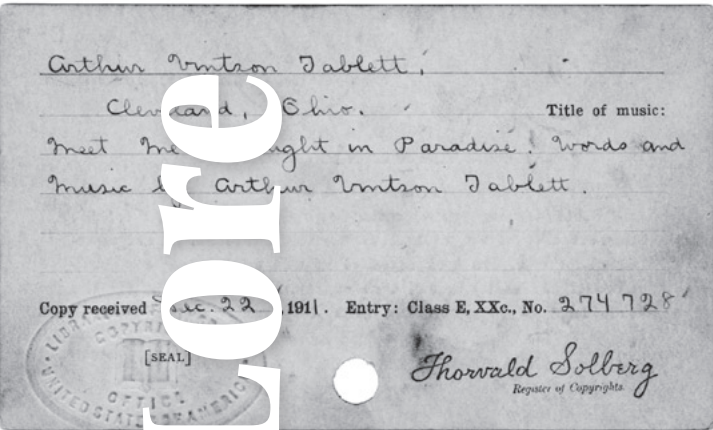 Arthur Vmtson Tablett,
Cleveland, Ohio.
Title of music:
Meet Me in Paradise. Words and
Music by Arthur Vmtson Tablett.
Copy received Dec. 22, 1911. Entry: Class E, XXc., No. 274728
[SEAL]
LIBRARY COPYRIGHT OFFICE
UNITED STATES OF AMERICA
Thorvald Solberg
Register of Copyrights.
Lore